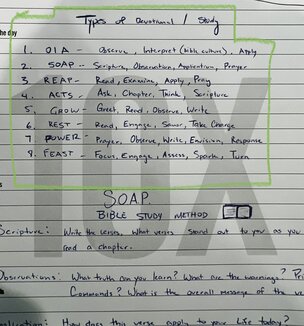 Types of Devotional / Study
the day
1. OIA - Observe, Interpret (bible culture), Apply
2. SOAP - Scripture, Observation, Application, Prayer
3. REAP - Read, Examine, Apply, Pray
4. ACTS - Ask, Chapter, Think, Scripture
5. GROW - Greet, Read, Observe, Write
6. REST - Read, Engage, Savor, Take Charge
7. POWER - Prayer, Observe, Write, Envision, Response
8. FEAST - Focus, Engage, Assess, Spark, Turn
10X
S.O.A.P.
BIBLE STUDY METHOD
Scripture: Write the verses, What verses stand out to you as you
read a chapter.
Observations: What truth can you learn? What are the warnings?
Commands? What is the overall message of the
How does this verse apply to your life today?